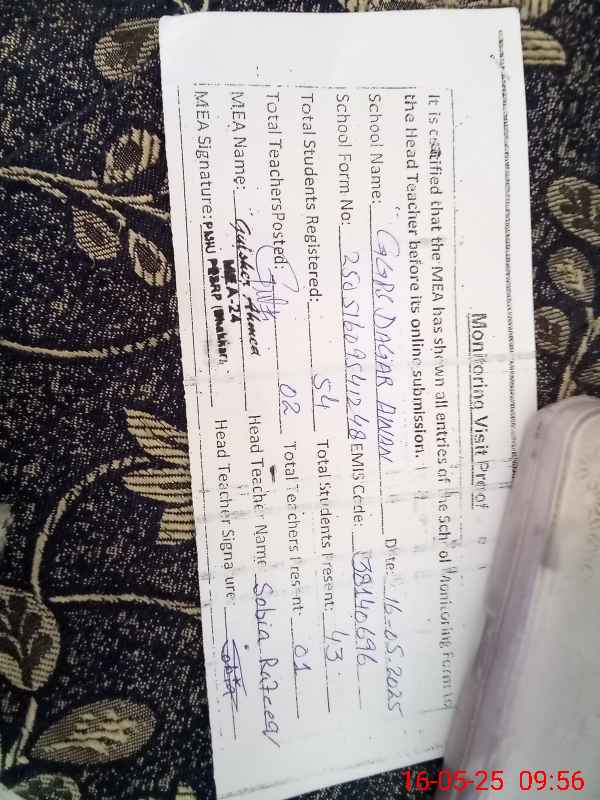 Monitoring Visit Proof
It is certified that the MEA has shown all entries of the School Monitoring Form to
the Head Teacher before its online submission.
School Name: GGPS DAGAR AWAN Date: 16.05.2025
School Form No: EMIS Code: 38140696
Total Students Registered: 54 Total Students Present: 43
Total Teachers Posted: 02 Total Teachers Present: 01
MEA Name: Gulsher Ahmed Head Teacher Name Sobia
MEA-24
MEA Signature: PMIU PESRP (Bhakkar) Head Teacher Signature:
16-05-25 09:56